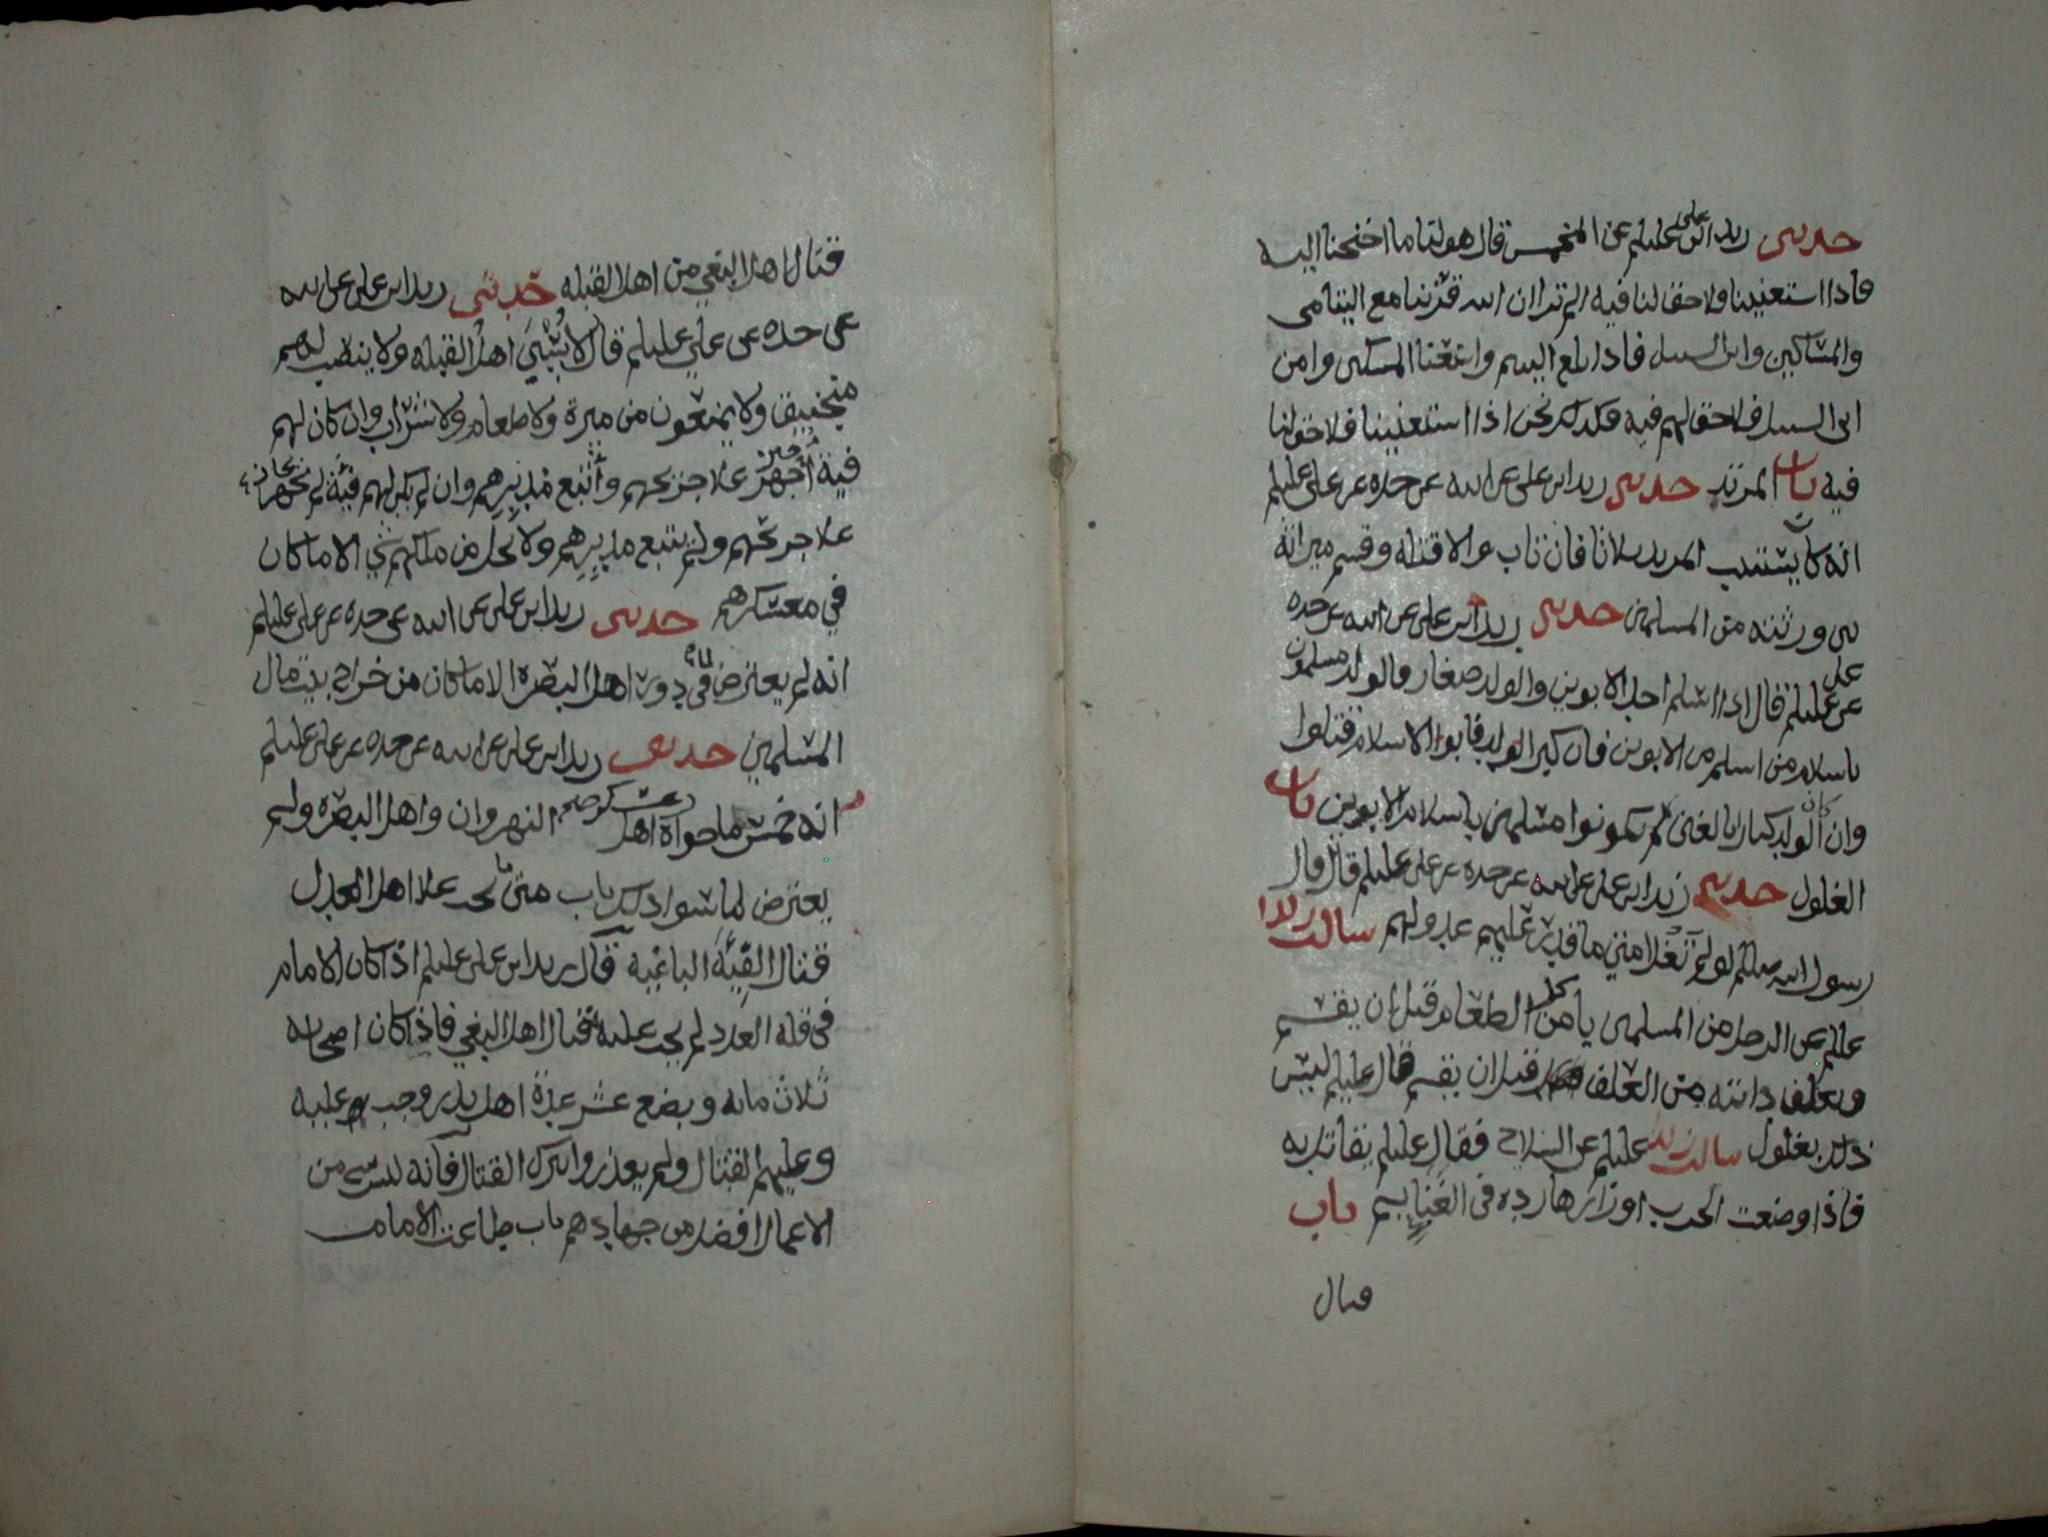 حدثني زيد ابن علي عليلم عن الخمس قال هو لنا ما احتجنا اليه
فاذا استغنينا فلا حق لنا فيه الم تر ان الله قرننا مع اليتامى
والمساكين وابن السبيل فاذا بلغ اليتيم واستغنا المسكين وامن
ابن السبيل فلا حق لهم فيه وكذلك نحن اذا استغنينا فلا حق لنا
فيه باب المرتد حدثني زيد ابن علي عن ابيه عن جده عن علي عليلم
انه كان يستتيب المرتد ثلاثا فان تاب والا قتله وقسم ميراثه
بين ورثته من المسلمين حدثني زيد ابن علي عن ابيه عن جده
عن علي عليلم قال اذا اسلم احد الابوين والولد صغار فالولد مسلمون
باسلام من اسلم من الابوين فان كبر الولد فابوا الاسلام قتلوا
وان كان الولد كبارا بالغين لم يكونوا مسلمين باسلام الابوين باب
الغلول حدثني زيد ابن علي عن ابيه عن جده عن علي عليلم قال قال
رسول الله صلللم لو لم تغل امتي ما قدر عليهم عدو لهم سالت زيدا
عليلم عن الرجل من المسلمين ياكل من الطعام قبل ان يقسم
ويعلف دابته من العلف قبل ان يقسم قال عليلم ليس
ذلك بغلول سالت زيد عليلم عن السلاح فقال عليلم يقاتل به
فاذا وضعت الحرب اوزارها رده في الغنايم باب
قتال
قتال اهل البغي من اهل القبله حدثني زيد ابن علي عن ابيه
عن جده عن علي عليلم قال لا يسبي اهل القبله ولا ينصب لهم
منجنيق ولا يمنعون من ميرة ولا طعام ولا شراب وان كان لهم
فية اجهز علا جريحهم واتبع مدبرهم وان لم يكن لهم فية لم يجهز
علا جريحهم ولم يتبع مدبرهم ولا يحل من ملكهم شي الا ما كان
في معسكرهم حدثني زيد ابن علي عن ابيه عن جده عن علي عليلم
انه لم يعترض لما في دور اهل البصره الا ما كان من خراج بيت مال
المسلمين حدثني زيد ابن علي عن ابيه عن جده عن علي عليلم
انه خمس ما حواه عسكر اهل النهروان واهل البصره ولم
يعترض لما سوا ذلك باب متى يجب علا اهل العدل
قتال الفية الباغيه قال زيد ابن علي عليلم اذا كان الامام
في قله العدد لم يجب عليه قتال اهل البغي فاذا كان اصحابه
ثلاث مايه وبضع عشر عدة اهل بدر وجب عليه
وعليهم القتال ولم يعذروا بترك القتال فانه ليس شي من
الاعمال افضل من جهادهم باب طاعت الامام